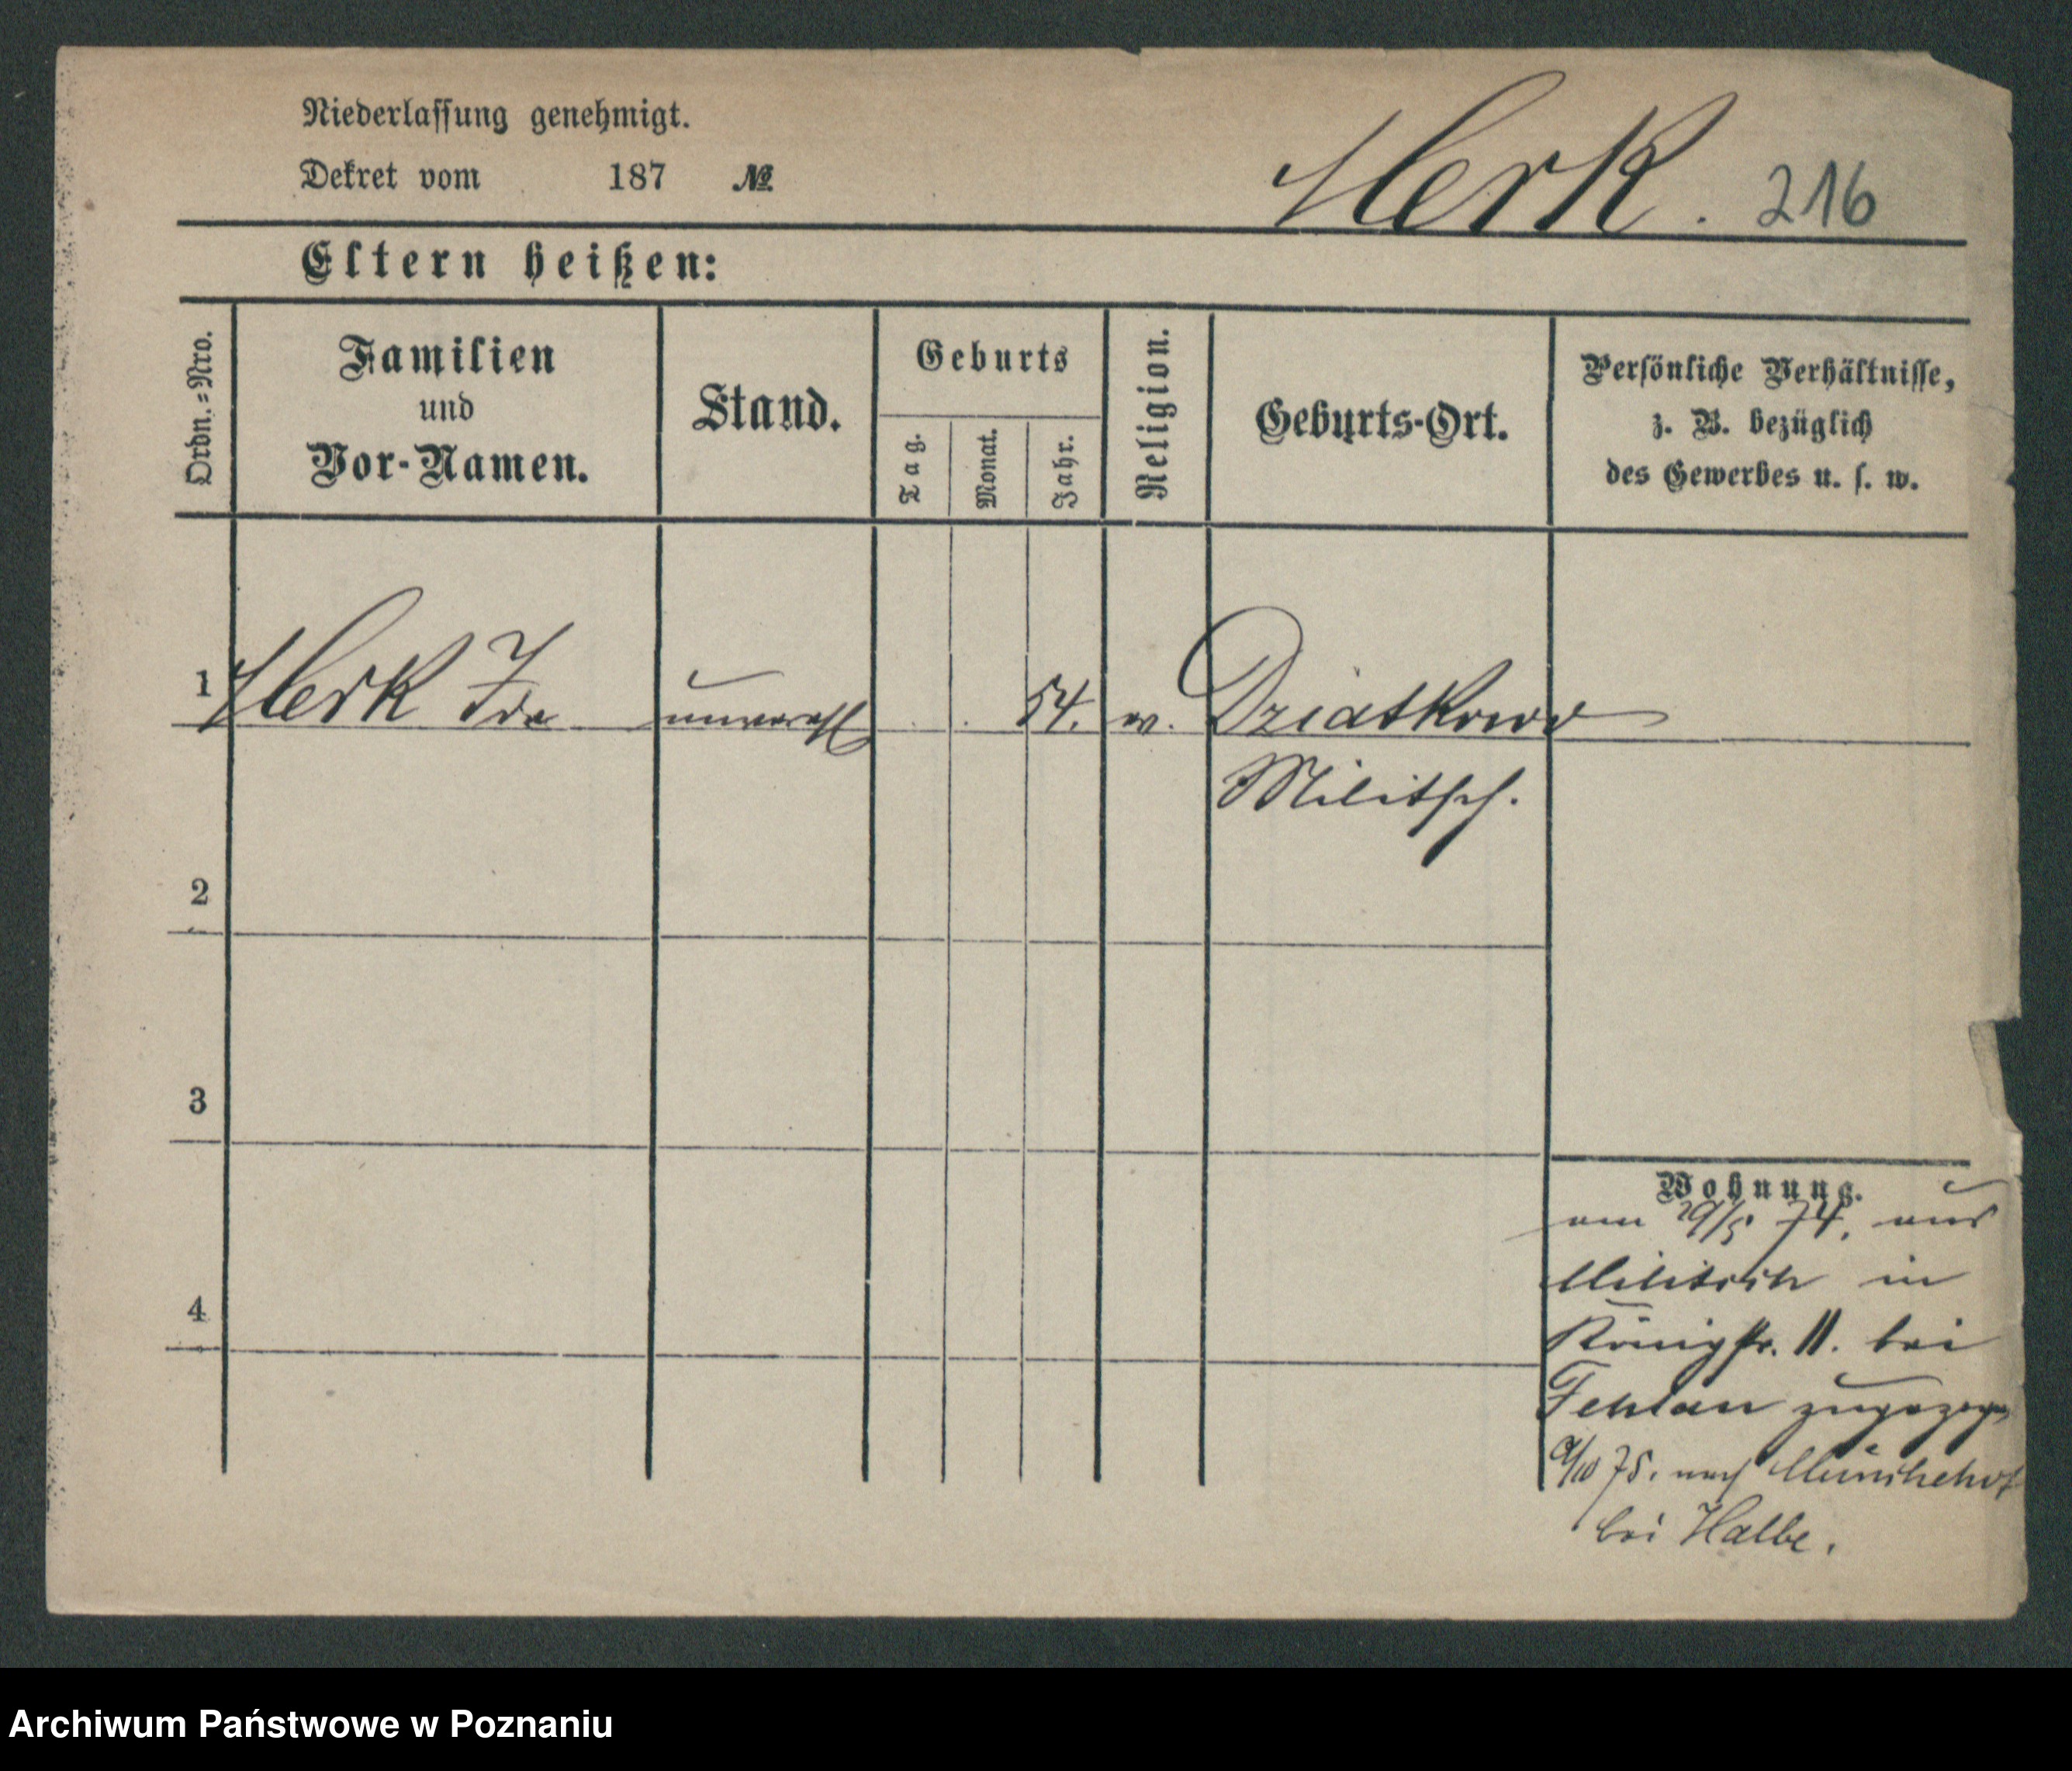 Niederlassung genehmigt.
Dekret vom 187 №
Merk. 216
Eltern heißen:
Ordn.-Nro.
Familien
und
Vor-Namen.
Stand.
Geburts
Tag.
Monat.
Jahr.
Religion.
Geburts-Ort.
Persönliche Verhältnisse,
z. B. bezüglich
des Gewerbes u. s. w.
1 Merk Ida unvereh 54. Dziatkowo
Militsch.
2
3
4
Wohnung.
am 29/5 74. aus
Militsch in
Königstr. 11. bei
Fehlan zugezogen
9/10 75. nach Münchehof
bei Halbe.
Archiwum Państwowe w Poznaniu